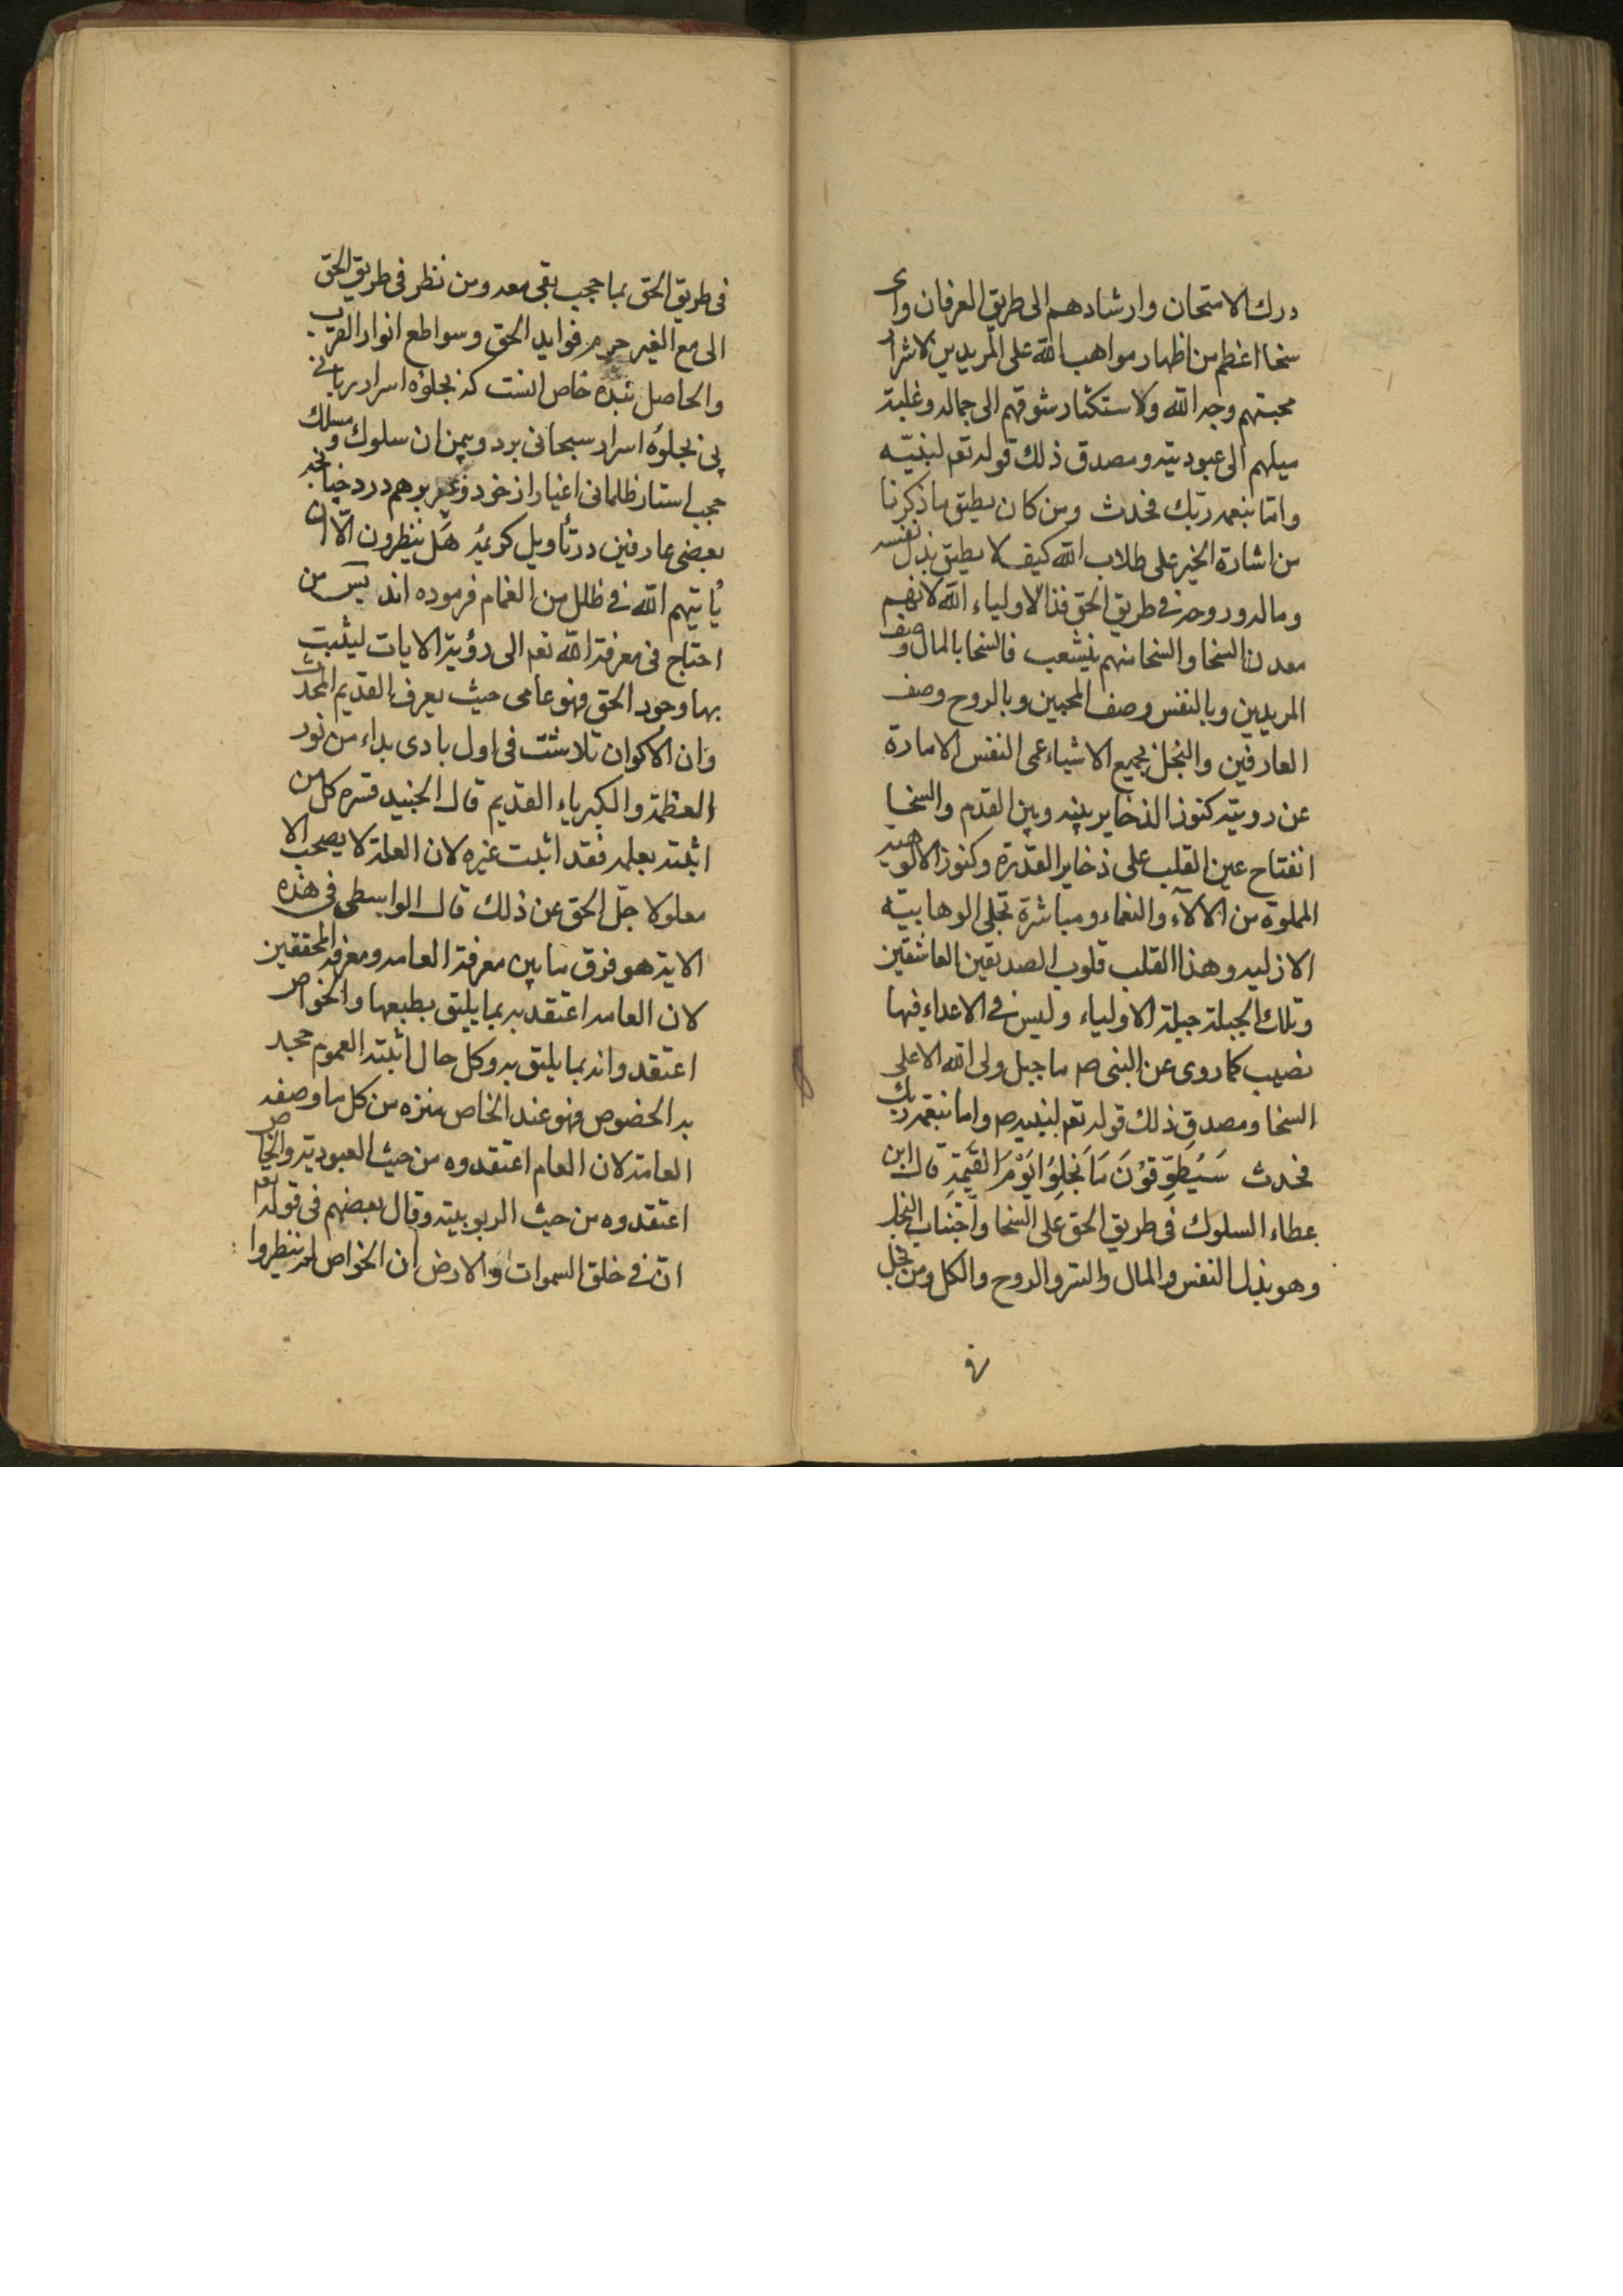 درك الامتحان وارشادهم الى طريق العرفان واى
سخا اعظم من اظهار مواهب الله على المريدين لاشرار
محبتهم وجه الله ولاستكثار شوقهم الى جماله وغلبة
ميلهم الى عبوديته ومصدق ذلك قوله تعم لنبيّه
وامّا بنعمه ربّك فحدث ومن كان يطيق ما ذكرنا
من اشارة الخير على طلاب الله كيف لا يطيق بذل نفسه
وماله وروحه فى طريق الحق فذا لاولياء الله لانهم
معدن السخا والسخا منهم ينشعب فالسخا بالمال وصف
المريدين وبالنفس وصف المحبين وبالروح وصف
العارفين والبخل بجميع الاشياء عمى النفس الامارة
عن روية كنوز الذخاير بينه وبين القدم والسخا
انفتاح عين القلب على ذخاير القدرة وكنوز الالوهيه
المملوة من الآلآء والنعماء ومباشرة تجلى الوهابيته
الازليه وهذا القلب قلوب الصديقين العاشقين
وتلك الجبلة جبلة الاولياء وليس فى الاعداء فيها
نصيب كما روى عن النبى صم ما جبل ولى الله الا على
السخا ومصدق ذلك قوله تعم لنبيه صم واما بنعمه ربك
فحدث سَيُطَوَّقوُنَ مَا بَخِلوُا يَوْمَ القِيمَةِ قال ابن
عطاء السلوك فى طريق الحق على السخا واجتناب البخل
وهو بذل النفس والمال والسر والروح والكل ومن بخل
فى
فى طريق الحق بما حجب بقى معه ومن نظر فى طريق الحق
الى مع الغير حرم فوايد الحق وسواطع انوار القرب
والحاصل بنده خاص انست كه بجلوه اسرار ربانى
پى بجلوه اسرار سبحانى برد وبيمن ان سلوك ومسلك
حجب استار ظلمانى اغيار از خرد وغير بر هم درد چنانچه
بعضى عارفين در تأويل كريمه هَل ينظرون الّا ان
يأتيهم الله فى ظلل من الغمام فرموده اند پس من
احتاج فى معرفة الله تعم الى رؤية الايات ليثبت
بها وجود الحق فهو عامى حيث يعرف القديم المحدث
وان الاكوان تلاشت فى اول بادى بداء من نور
العظمة والكبرياء القديم قال الجنيد قسره كل من
اثبته بعلمه فقد اثبت غيره لان العلة لا يصحب الا
معلولا جلّ الحق عن ذلك قال الواسطى فى هذه
الاية هو فرق ما بين معرفة العامه ومعرفة المحققين
لان العامه اعتقد به بما يليق بطبعها والخواص
اعتقدوا به بما يليق به وكل حال اثبته العموم جحد
به الخصوص فهو عند الخاص منزه من كل ما وصفه
العامة لان العام اعتقدوه من حيث العبودية والخاص
اعتقدوه من حيث الربوبيته وقال بعضهم فى قوله تعم
انّ فى خلق السموات والارض ان الخواص لم ينظروا